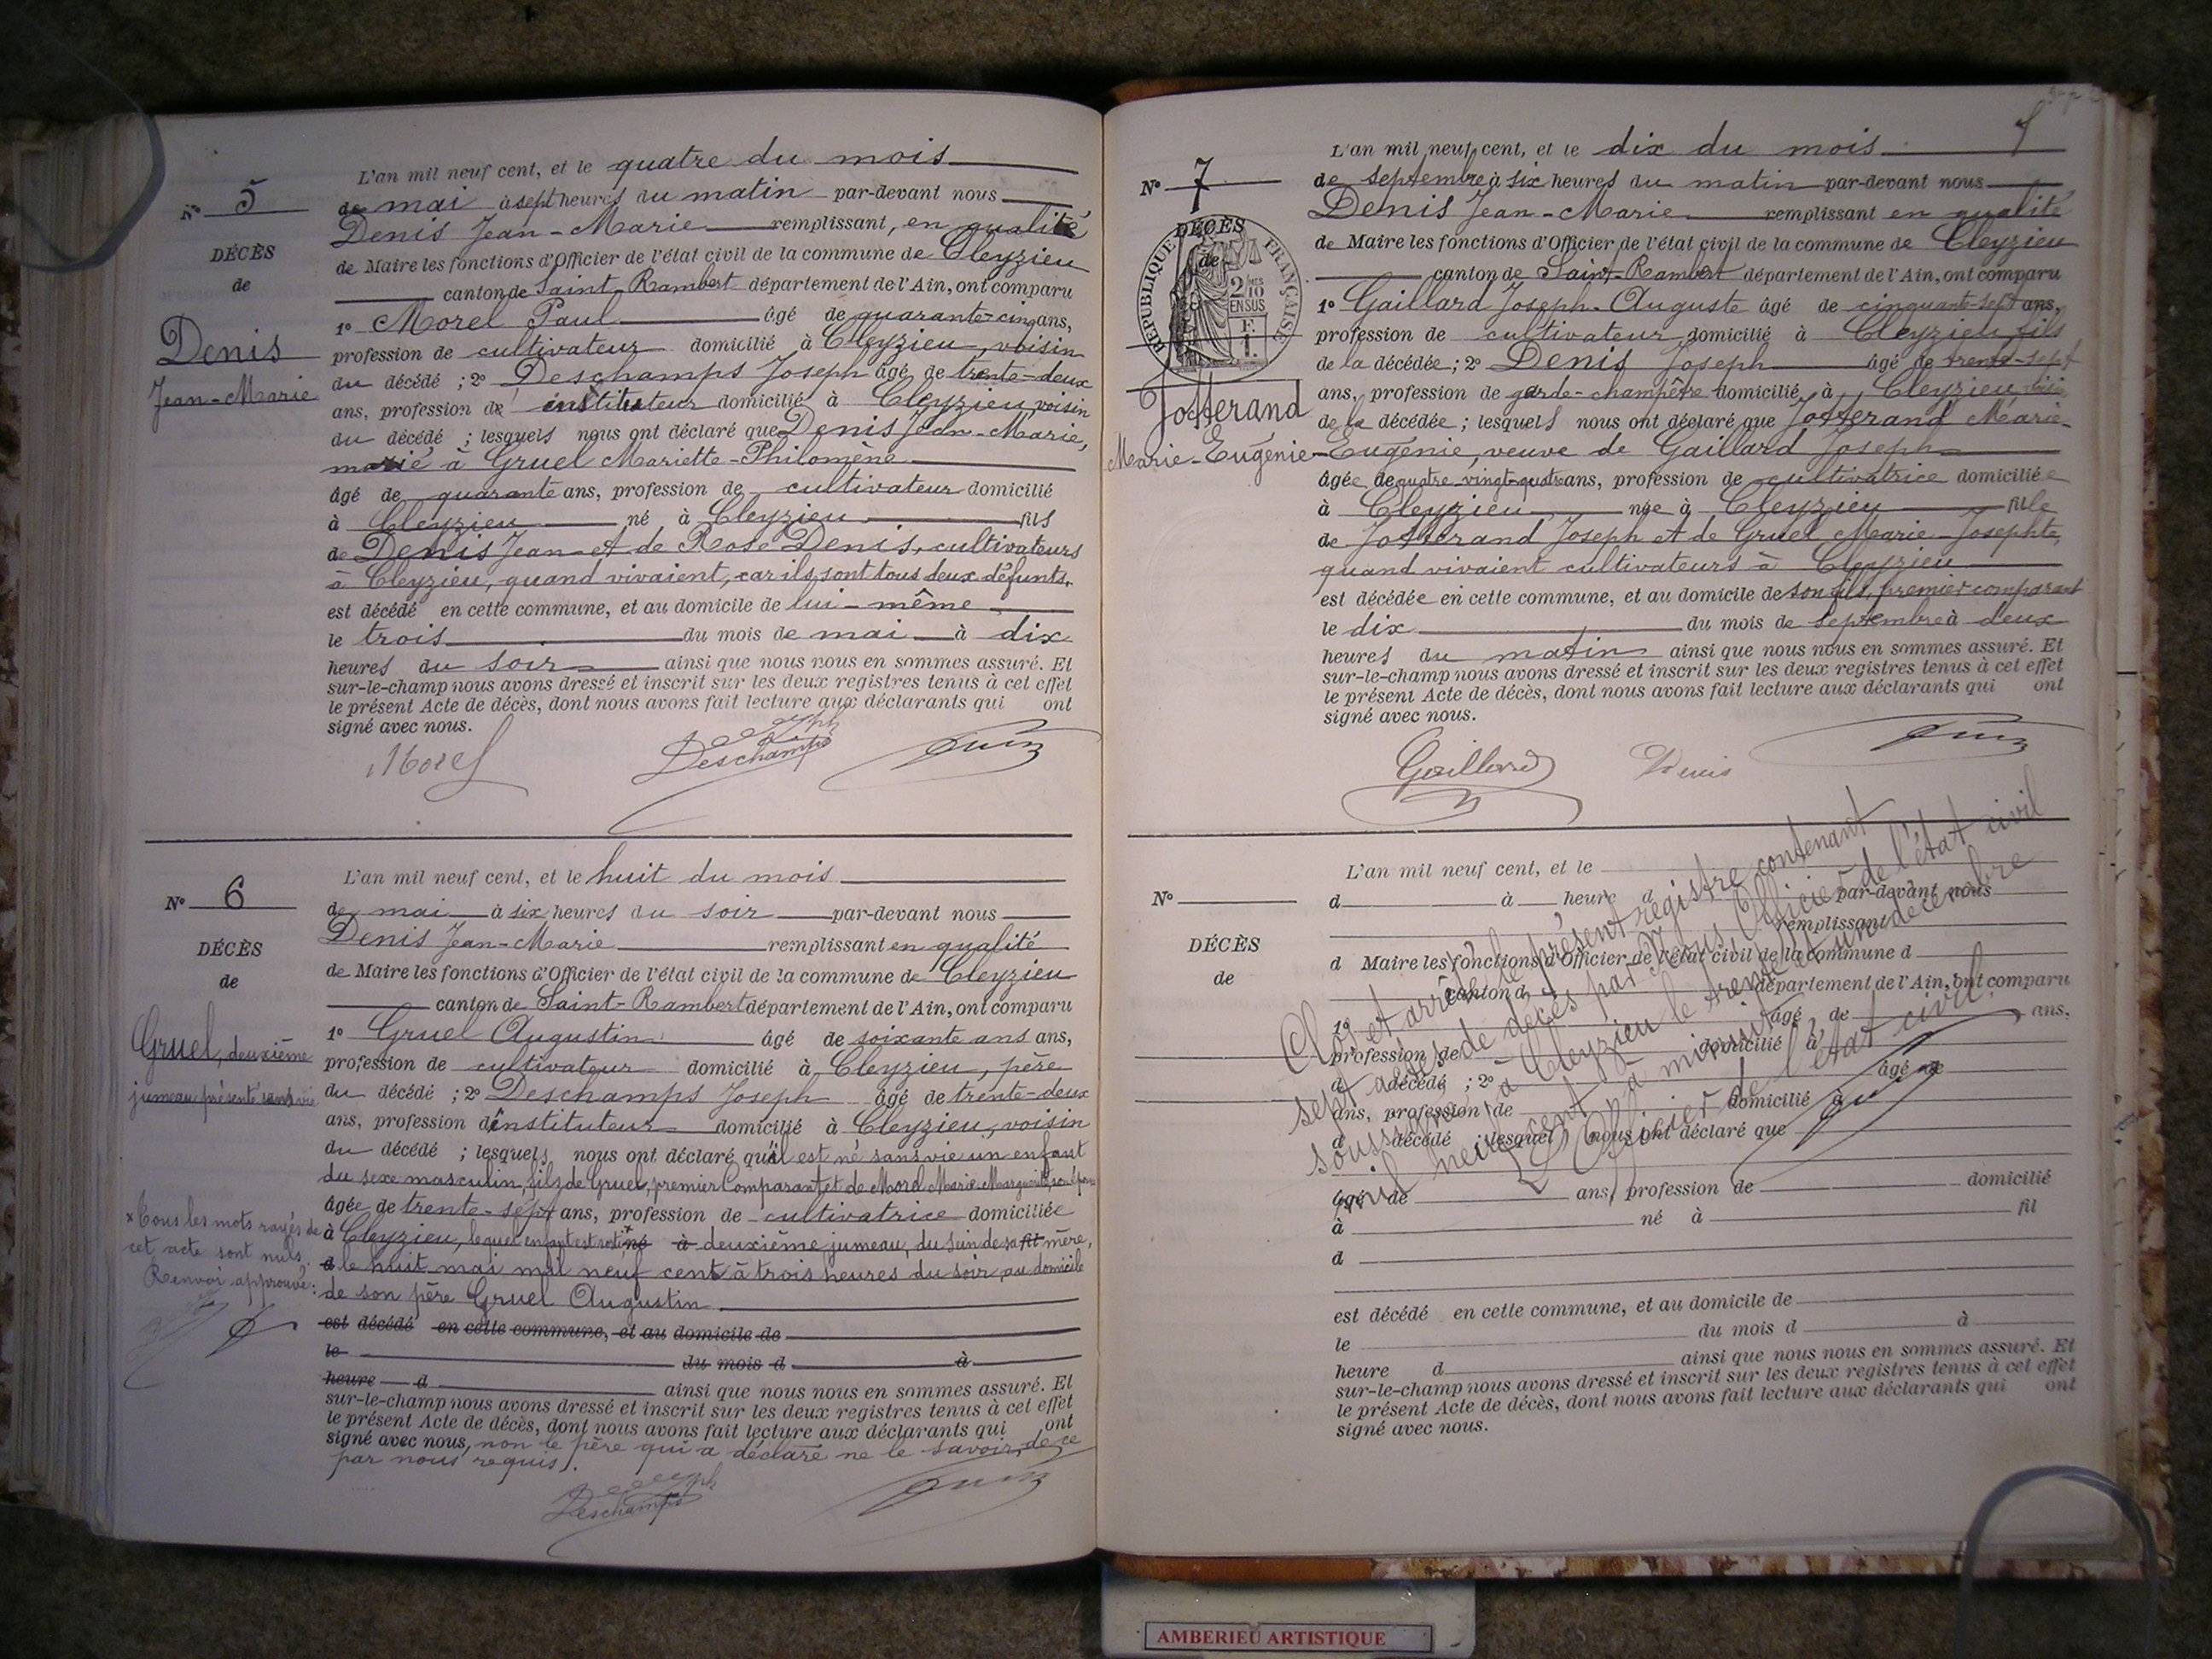 N° 5
DÉCÈS
de
Denis
Jean-Marie
L'an mil neuf cent, et le quatre du mois
de mai à sept heures du matin par-devant nous
Denis Jean-Marie remplissant, en qualité
de Maire les fonctions d'Officier de l'état civil de la commune de Cleyzieu
canton de Saint-Rambert département de l'Ain, ont comparu
1° Morel Paul âgé de quarante-cinq ans,
profession de cultivateur domicilié à Cleyzieu, voisin
du décédé ; 2° Deschamps Joseph âgé de trente-deux
ans, profession de instituteur domicilié à Cleyzieu, voisin
du décédé ; lesquels nous ont déclaré que Denis Jean-Marie,
marié à Gruel Mariette-Philomène
âgé de quarante ans, profession de cultivateur domicilié
à Cleyzieu né à Cleyzieu fils
de Denis Jean et de Rose Denis, cultivateurs
à Cleyzieu, quand vivaient, car ils sont tous deux défunts,
est décédé en cette commune, et au domicile de lui-même
le trois du mois de mai à dix
heures du soir ainsi que nous nous en sommes assuré. Et
sur-le-champ nous avons dressé et inscrit sur les deux registres tenus à cet effet
le présent Acte de décès, dont nous avons fait lecture aux déclarants qui ont
signé avec nous.
Morel Deschamps Joseph
N° 6
DÉCÈS
de
Gruel, deuxième
jumeau présenté sans vie
L'an mil neuf cent, et le huit du mois
de mai à six heures du soir par-devant nous
Denis Jean-Marie remplissant en qualité
de Maire les fonctions d'Officier de l'état civil de la commune de Cleyzieu
canton de Saint-Rambert département de l'Ain, ont comparu
1° Gruel Augustin âgé de soixante ans ans,
profession de cultivateur domicilié à Cleyzieu, père
du décédé ; 2° Deschamps Joseph âgé de trente-deux
ans, profession d'instituteur domicilié à Cleyzieu, voisin
du décédé ; lesquels nous ont déclaré qu'il est né sans vie un enfant
du sexe masculin, fils de Gruel, premier Comparant et de Morel Marie-Marguerite, son épouse
âgée de trente-sept ans, profession de cultivatrice domiciliée
à Cleyzieu, lequel enfant est sorti* né à deuxième jumeau, du sein de sa fil mère,
d le huit mai mil neuf cent à trois heures du soir, au domicile
de son père Gruel Augustin
est décédé en cette commune, et au domicile de
le du mois d à
heure d ainsi que nous nous en sommes assuré. Et
sur-le-champ nous avons dressé et inscrit sur les deux registres tenus à cet effet
le présent Acte de décès, dont nous avons fait lecture aux déclarants qui ont
signé avec nous, non le père qui a déclaré ne le savoir, de ce
par nous requis.
* Tous les mots rayés de
cet acte sont nuls.
Renvoi approuvé :
Deschamps Joseph
N° 7
DÉCÈS
de
RÉPUBLIQUE FRANÇAISE
2/10 EN SUS
Jotterand
Marie-Eugénie
L'an mil neuf cent, et le dix du mois
de septembre à six heures du matin par-devant nous
Denis Jean-Marie remplissant en qualité
de Maire les fonctions d'Officier de l'état civil de la commune de Cleyzieu
canton de Saint-Rambert département de l'Ain, ont comparu
1° Gaillard Joseph-Auguste âgé de cinquante-sept ans,
profession de cultivateur domicilié à Cleyzieu fils
de la décédée ; 2° Denis Joseph âgé de trente-sept
ans, profession de garde-champêtre domicilié à Cleyzieu, voisin
de la décédée ; lesquels nous ont déclaré que Jotterand Marie-
Eugénie, veuve de Gaillard Joseph
âgée de quatre-vingt-quatre ans, profession de cultivatrice domiciliée
à Cleyzieu née à Cleyzieu fille
de Jotterand Joseph et de Gruel Marie-Josephte,
quand vivaient cultivateurs à Cleyzieu
est décédée en cette commune, et au domicile de son fils, premier comparant
le dix du mois de septembre à deux
heures du matin ainsi que nous nous en sommes assuré. Et
sur-le-champ nous avons dressé et inscrit sur les deux registres tenus à cet effet
le présent Acte de décès, dont nous avons fait lecture aux déclarants qui ont
signé avec nous.
Gaillard Denis
N°
DÉCÈS
de
L'an mil neuf cent, et le
d à heure d par-devant nous
remplissant
d Maire les fonctions d'Officier de l'état civil de la commune d
canton d département de l'Ain, ont comparu
1° âgé de ans,
profession de domicilié à
d décédé ; 2° âgé de
ans, profession de domicilié à
d décédé ; lesquel nous ont déclaré que
âgé de ans, profession de domicilié
à né à fil
d
est décédé en cette commune, et au domicile de
le du mois d à
heure d ainsi que nous nous en sommes assuré. Et
sur-le-champ nous avons dressé et inscrit sur les deux registres tenus à cet effet
le présent Acte de décès, dont nous avons fait lecture aux déclarants qui ont
signé avec nous.
Clos et arrêté le présent registre contenant
sept actes de décès par Nous, Officier de l'état civil
soussigné, à Cleyzieu le trente et un décembre
mil neuf cent à minuit.
L'Officier de l'état civil.
AMBERIEU ARTISTIQUE